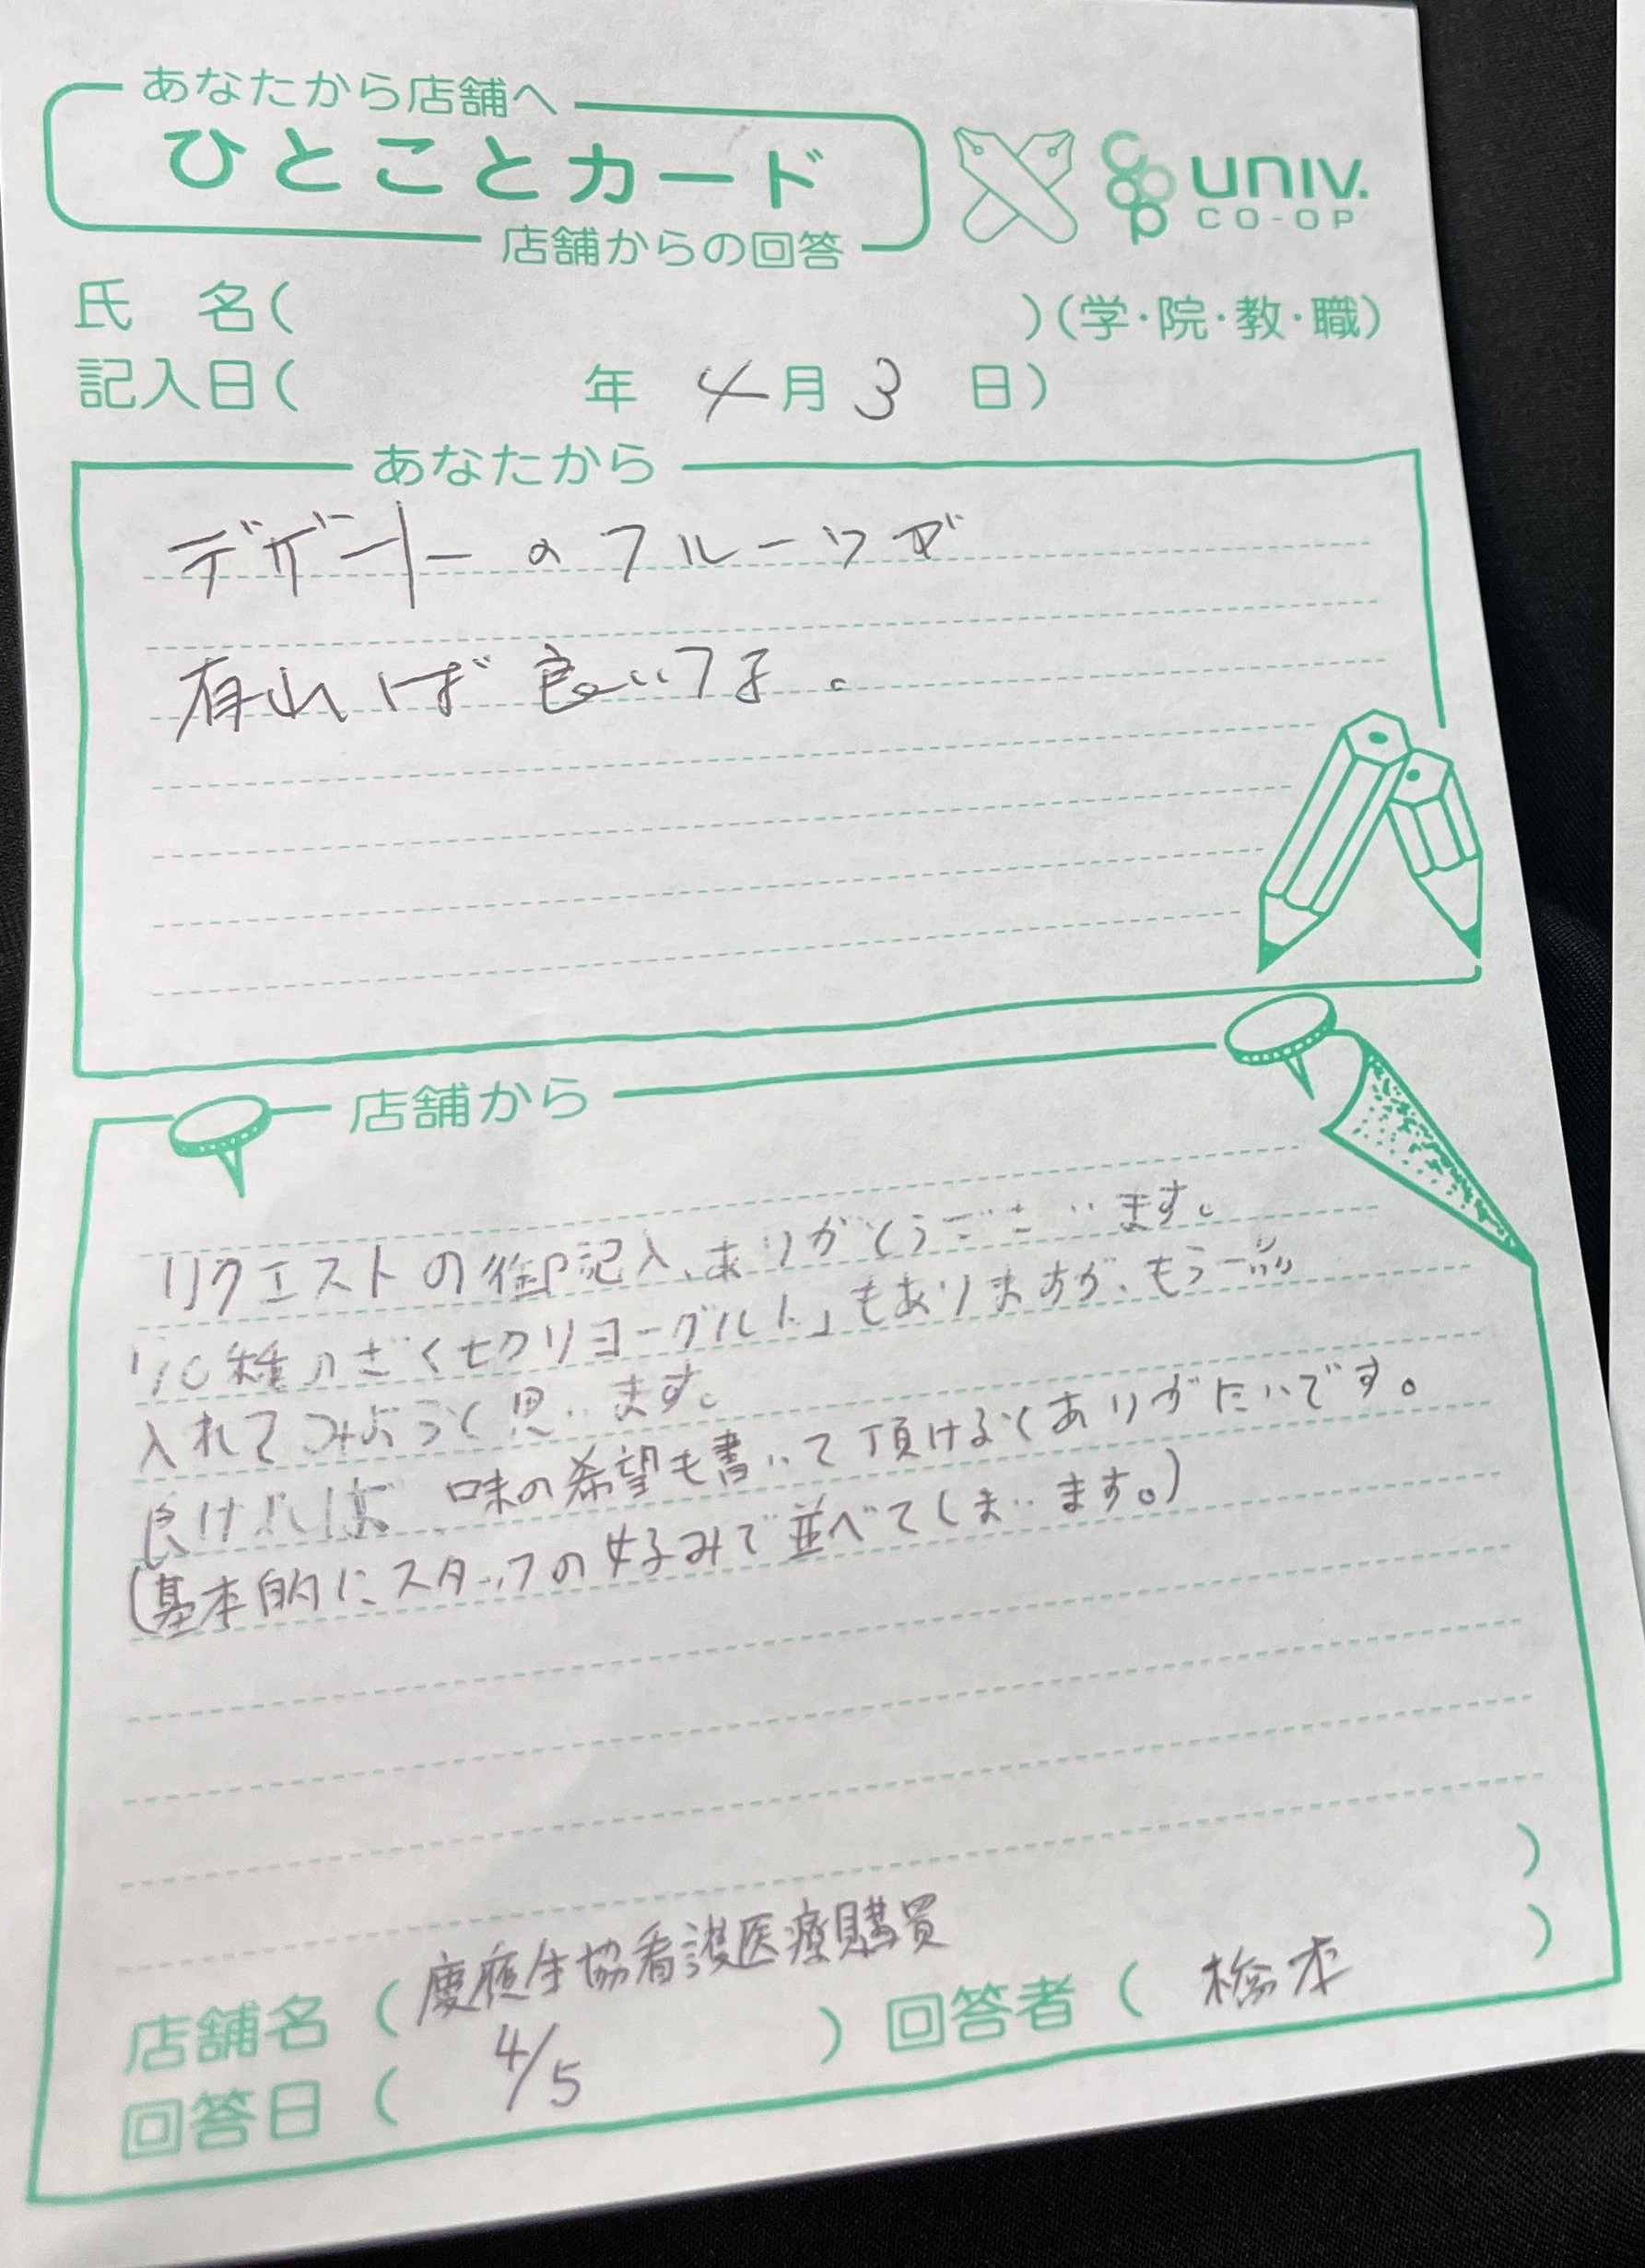 あなたから店舗へ
ひとことカード
店舗からの回答
COOP UNIV. CO-OP
氏 名( )(学・院・教・職)
記入日( 年 4月 3 日)
あなたから
デザートのフルーツが
有れば良いです。
店舗から
リクエストの御記入、ありがとうございます。
「10種のざく切りヨーグルト」もありますが、もう一品
入れてみようと思います。
良ければ、味の希望も書いて頂けるとありがたいです。
(基本的にスタッフの好みで並べてしまいます。)
店舗名( 慶應生協看護医療購買 )
回答日( 4/5 ) 回答者( 橋本 )